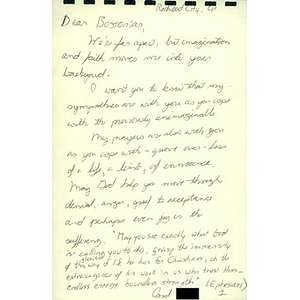 Redwood City, CA
Dear Bostonian,
We're far apart, but imagination
and faith moves me into your
backyard.
I want you to know that my
sympathies are with you as you cope
with the previously unimaginable
My prayers are also with you
as you cope with - grieve over - loss
of a life, a limb, of innocence.
May God help you move through
denial, anger, grief to acceptance
and perhaps even joy in the
suffering. "May you see exactly what God
is calling you to do, grasp the immensity
of this glorious way of life he has for Christians, oh the
extravagance of his work in us who trust Him -
endless energy, boundless strength." (Ephesians
1
Carol